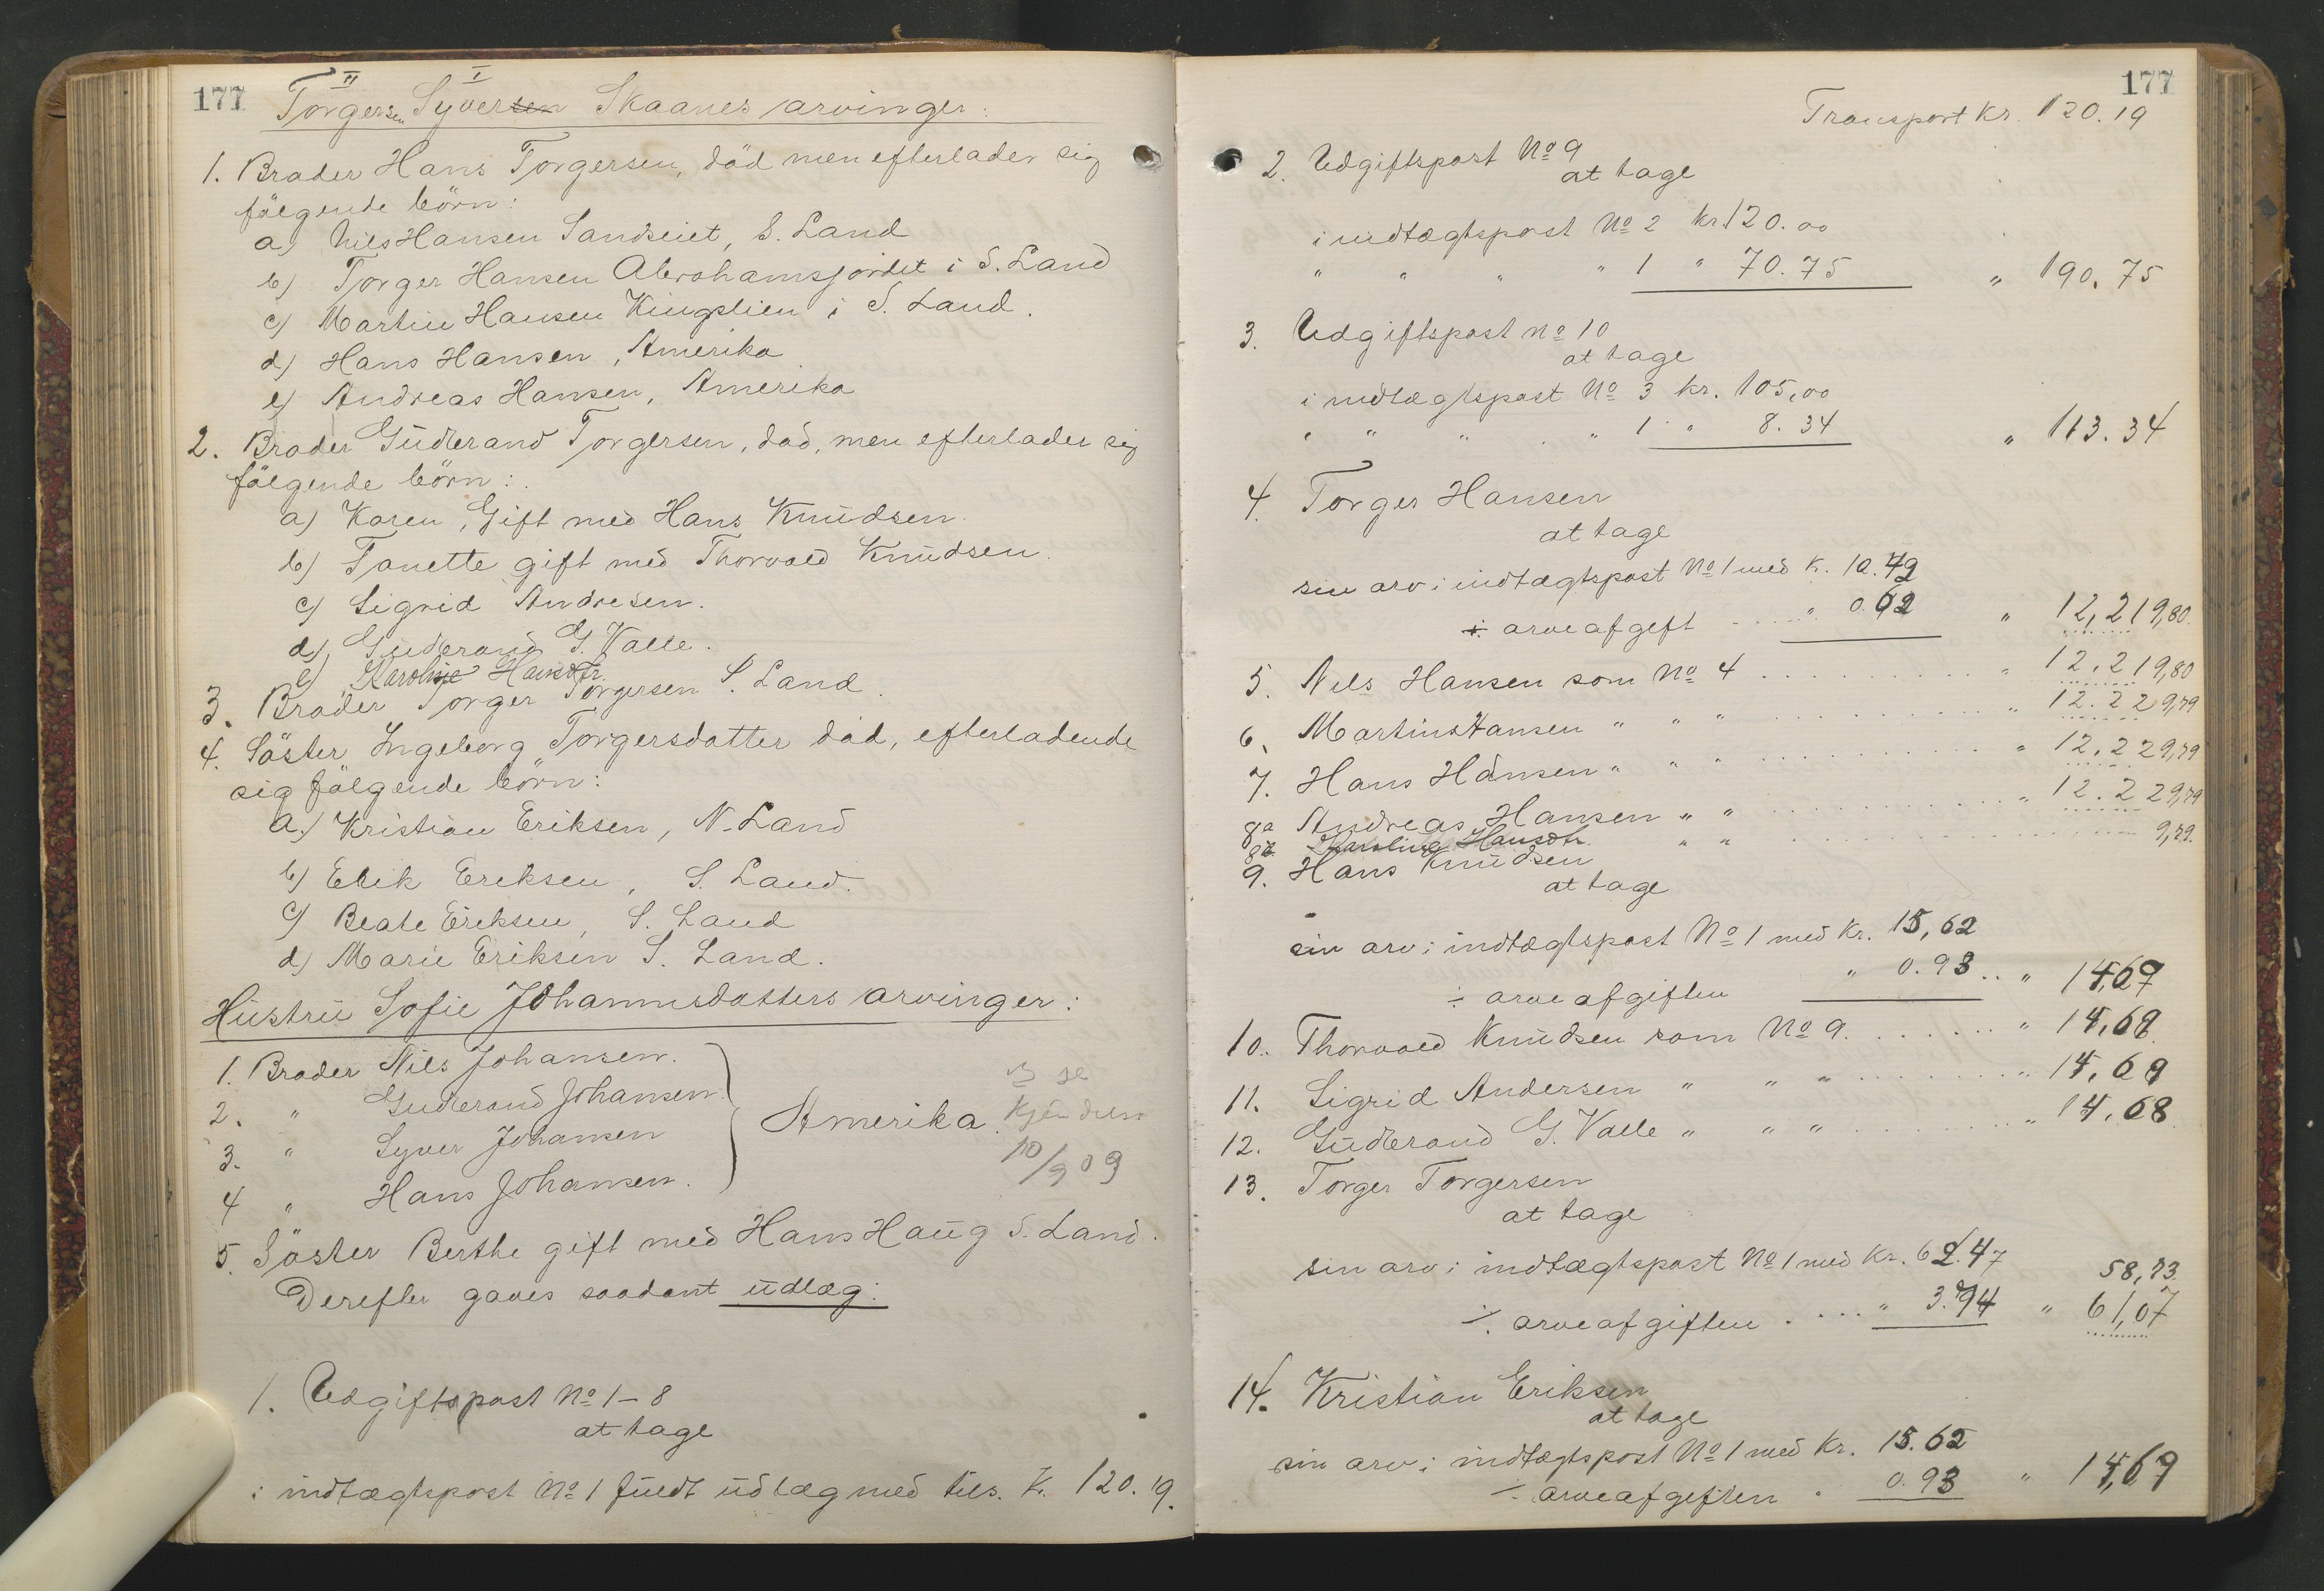 177 Torgersen Syversen Skaanes arvinger.
II I
1. Broder Hans Torgersen, död men efterlader sig
fölgende börn:
a) Nils Hansen Sandseiet, S. Land
b) Torger Hansen Abrahamsjordet i S. Land
c) Martin Hansen Kingslien i S. Land.
d) Hans Hansen, Amerika
e) Andreas Hansen, Amerika
2. Broder Gudbrand Torgersen, död, men efterlader sig
fölgende börn:
a) Karen, Gift med Hans Knudsen.
b) Tanette gift med Thorvald Knudsen.
c) Sigrid Andresen.
d) Gudbrand G. Valle.
e) Karoline Hansdtr.
3. Broder Torger Torgersen S. Land.
4. Söster Ingeborg Torgersdatter död, efterladende
sig fölgende börn:
a.) Kristian Eriksen, N. Land
b) Erik Eriksen, S. Land.
c) Beate Eriksen, S. Land
d) Marie Eriksen S. Land.
Hustru Sofie Johannesdatters arvinger:
1. Broder Nils Johansen.
2. " Gudbrand Johansen.
3. " Syver Johansen
4 " Hans Johansen.
Amerika.
10/9 09
5. Söster Berthe gift med Hans Haug S. Land.
Derefter gaves saadant udlæg:
1. Udgiftspost No 1-8
at tage
i indtægtspost No 1 fuldt udlæg med tils. Kr. 120.19.
177
Transport Kr. 120.19
2. Udgiftspost No 9
at tage
i indtægtspost No 2 kr. 120.00
" " " " 1 " 70.75 " 190.75
3. Udgiftspost No 10
at tage
i indtægtspost No 3 kr. 105,00
" " " " 1 " 8.34 " 113.34
4. Torger Hansen
at tage
sin arv i indtægtspost No 1 med Kr. 10.42
÷ arveafgift .... " 0.62 " 12,21 9,80.
5. Nils Hansen som No 4 .......... " 12.21 9,80
6. Martinus Hansen " " " .......... " 12.22 9,79
7. Hans Hansen " " " .......... " 12.22 9,79
8a Andreas Hansen " " .......... " 12.22 9,79
8b Karoline Hansdtr. " " .......... 9,79.
9. Hans Knudsen
at tage
sin arv i indtægtspost No 1 med Kr. 15,62
÷ arveafgiften " 0.93 .. " 14,69
10. Thorvald Knudsen som No 9. ...... " 14,68
11. Sigrid Andersen " " " ...... " 14.69
12. Gudbrand G. Valle " " " ...... " 14.68
13. Torger Torgersen
at tage
sin arv i indtægtspost No 1 med Kr. 62.47
58,73.
÷ arveafgiften .... " 3.74 " 61,07
14. Kristian Eriksen
at tage
sin arv i indtægtspost No 1 med Kr. 15.62
÷ arveafgiften " 0.93 " 14,69